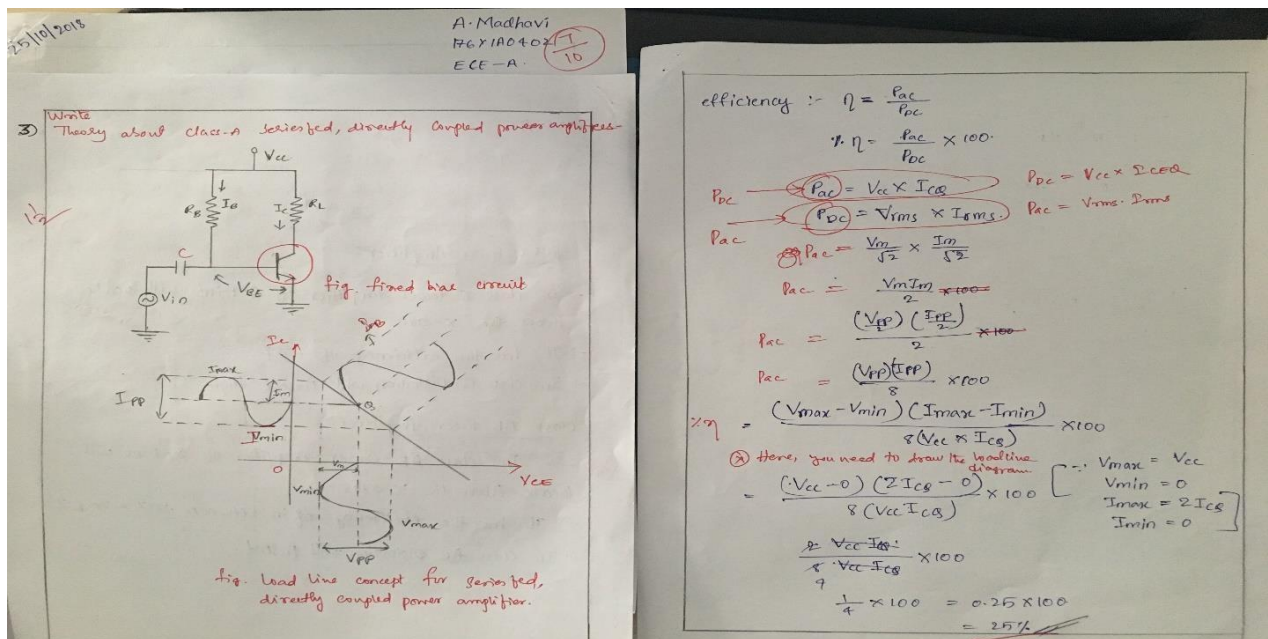 25/10/2018
A. Madhavi
176Y1A0402
ECE-A.
7/10
Write
3) Theory about class-A seriesfed, directly coupled power amplifiers-
Vcc
IB
RB
Ic
RL
C
VBE
Vin
fig. fixed bias circuit
Ic
Imax
Im
IPP
Imin
Q
0
VCE
Vm
Vmin
Vmax
VPP
fig. Load line concept for seriesfed,
directly coupled power amplifier.
efficiency :- η = Pac/PDC
% η = Pac/PDC × 100.
PDC → Pac = Vcc × ICQ
PDC = Vcc × ICEQ
Pac → PDC = Vrms × Irms.
Pac = Vrms. Irms
Pac = Vm/√2 × Im/√2
Pac = VmIm/2 × 100
Pac = (VPP/2) (IPP/2)/2 × 100
Pac = (VPP)(IPP)/8 × 100
% η = (Vmax - Vmin) (Imax - Imin)/8 (Vcc × ICQ) × 100
* Here, you need to draw the loadline
diagram
= (Vcc - 0) (2 ICQ - 0)/8 (Vcc ICQ) × 100
∵ Vmax = Vcc
Vmin = 0
Imax = 2 ICQ
Imin = 0
2 Vcc ICQ/8 Vcc ICQ × 100
4
1/4 × 100 = 0.25 × 100
= 25%